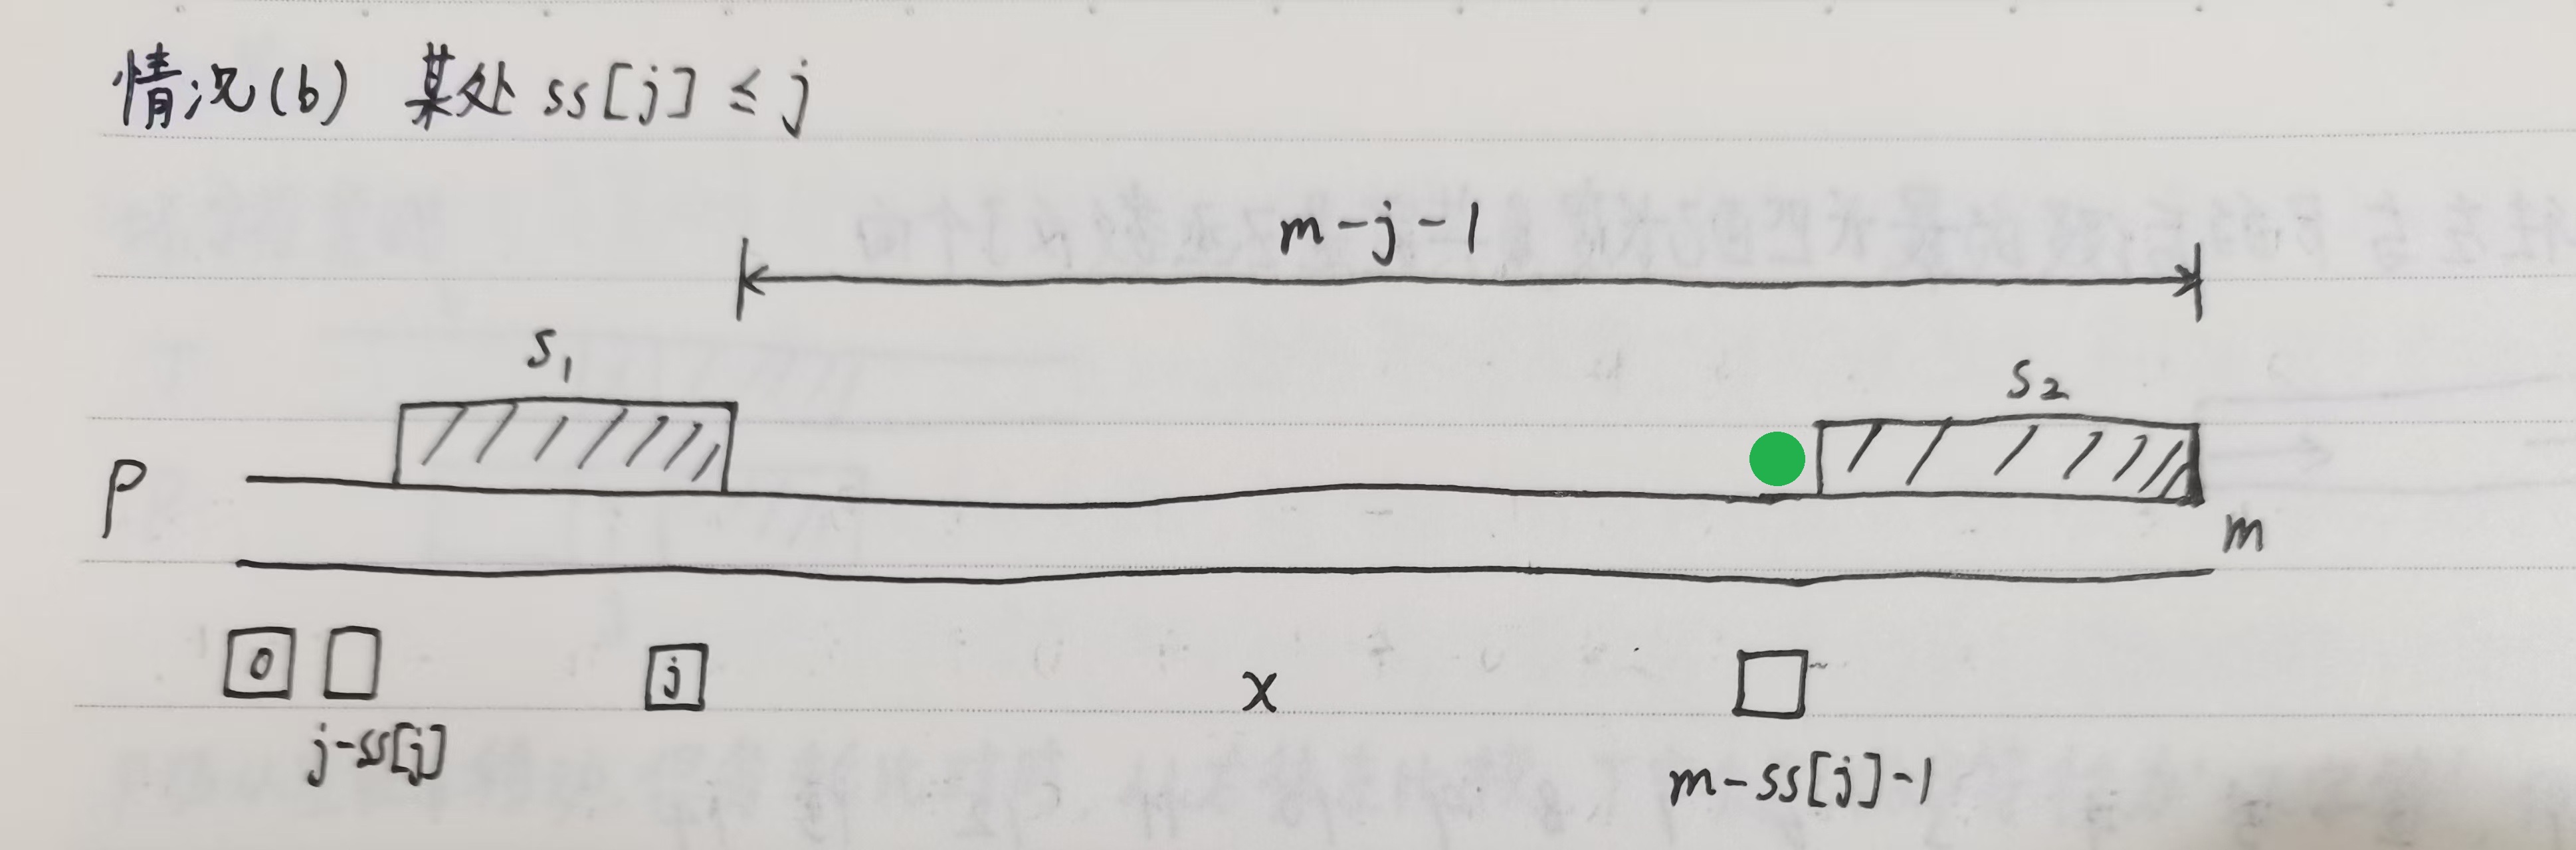 情况(b) 某处 ss[j] ≤ j
m-j-1
S₁
S₂
P
m
0
j
x
j-ss[j]
m-ss[j]-1